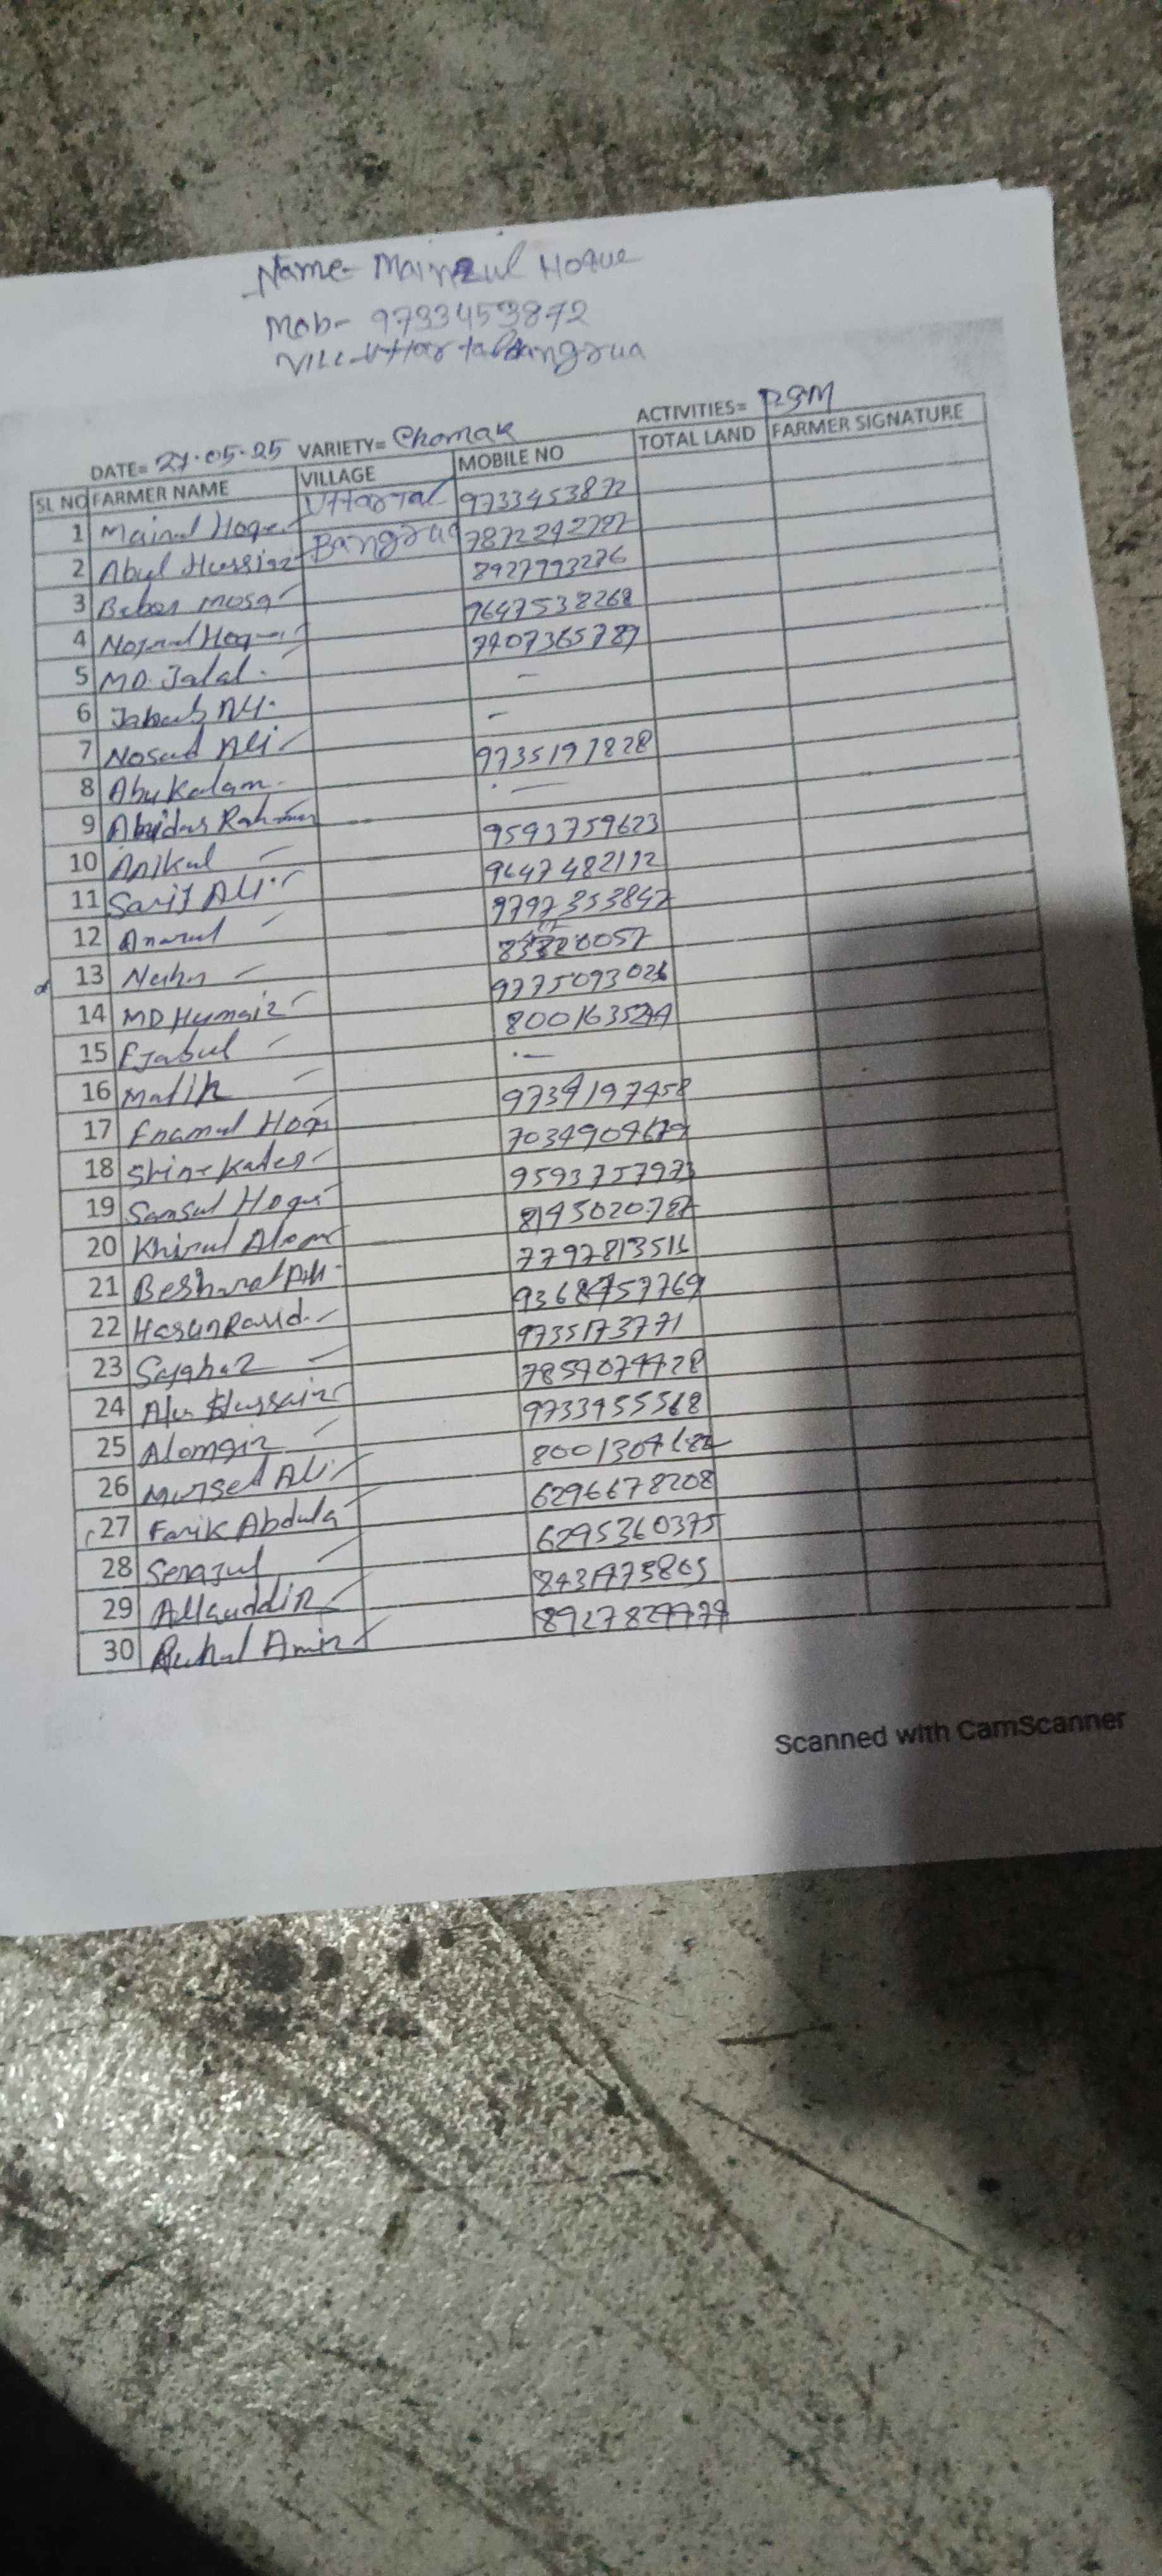 Name- Mainzul Hoque
Mob- 9733453872
VILL- Uttar Bangrua
DATE= 27.05.25 VARIETY= Chomak ACTIVITIES= PSM
SL NO FARMER NAME VILLAGE MOBILE NO TOTAL LAND FARMER SIGNATURE
1 Mainul Hoque Uttar Tal 9733453872
2 Abul Hussain Bangrua 7872242727
3 Mosa 8927793276
4 Hoque 9647538268
5 MD. Jalal 7407365789
6 Ali -
7 Nosad Ali -
8 Abu Kalam 9735197828
9 Rahman -
10 Anikul 9593759623
11 Sarif Ali 9647482112
12 Anarul 9797353847
13
14 MD Humair 9775093026
15 Ejabul
16 Malik -
17 Enamul Hoque 9734197458
18 Kader 7034904679
19 Samsul Hoque 9593757973
20 Khirul Alom 8145020787
21 Besharat Ali 7797813516
22 Hasan Rasid
23 9735173771
24 Hussain 7859074428
25 Alomgir 9733455568
26 Mursed Ali
27 Farik Abdula 6296678208
28 Serajul 6295360375
29 Allauddin
30 Ruhul Amin
Scanned with CamScanner